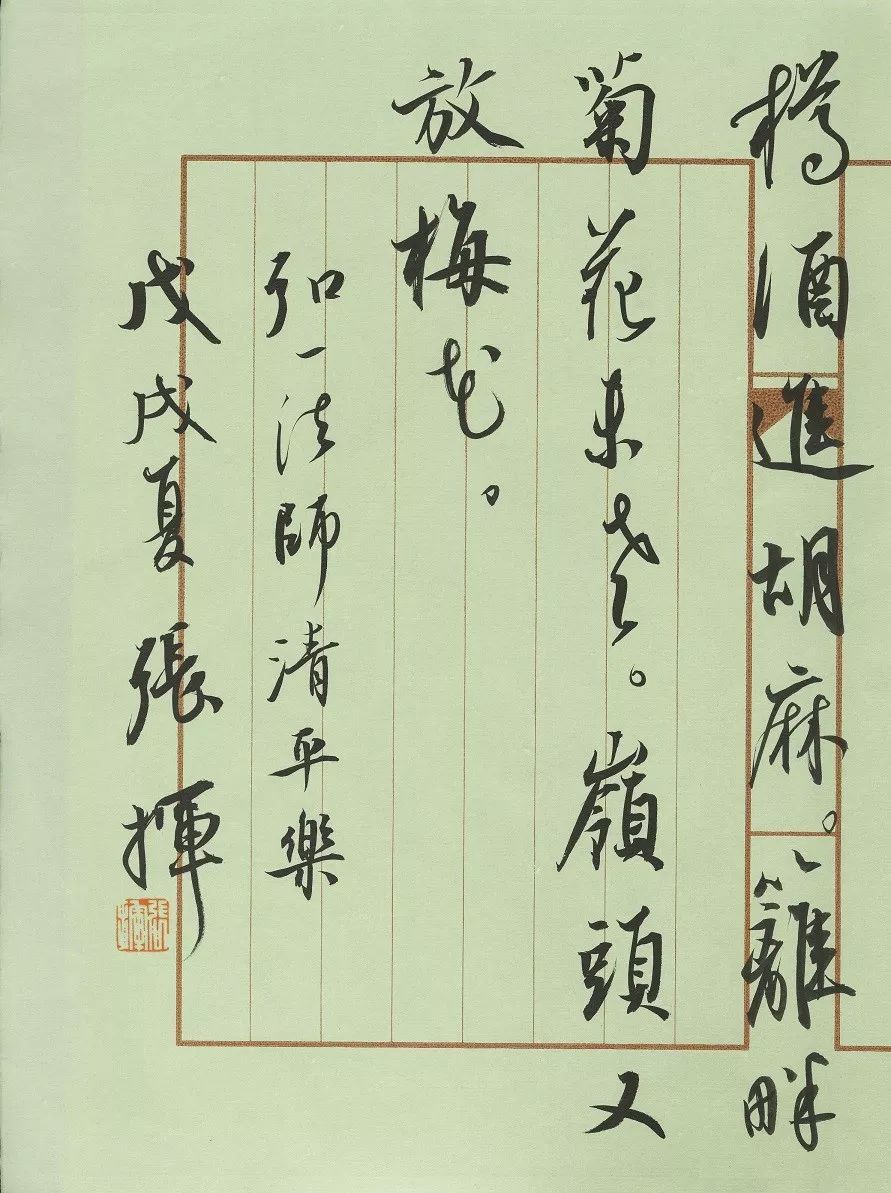 樽酒進胡麻。籬畔
菊花未老。嶺頭又
放梅花。
弘一法師清平樂
戊戌夏 張揮